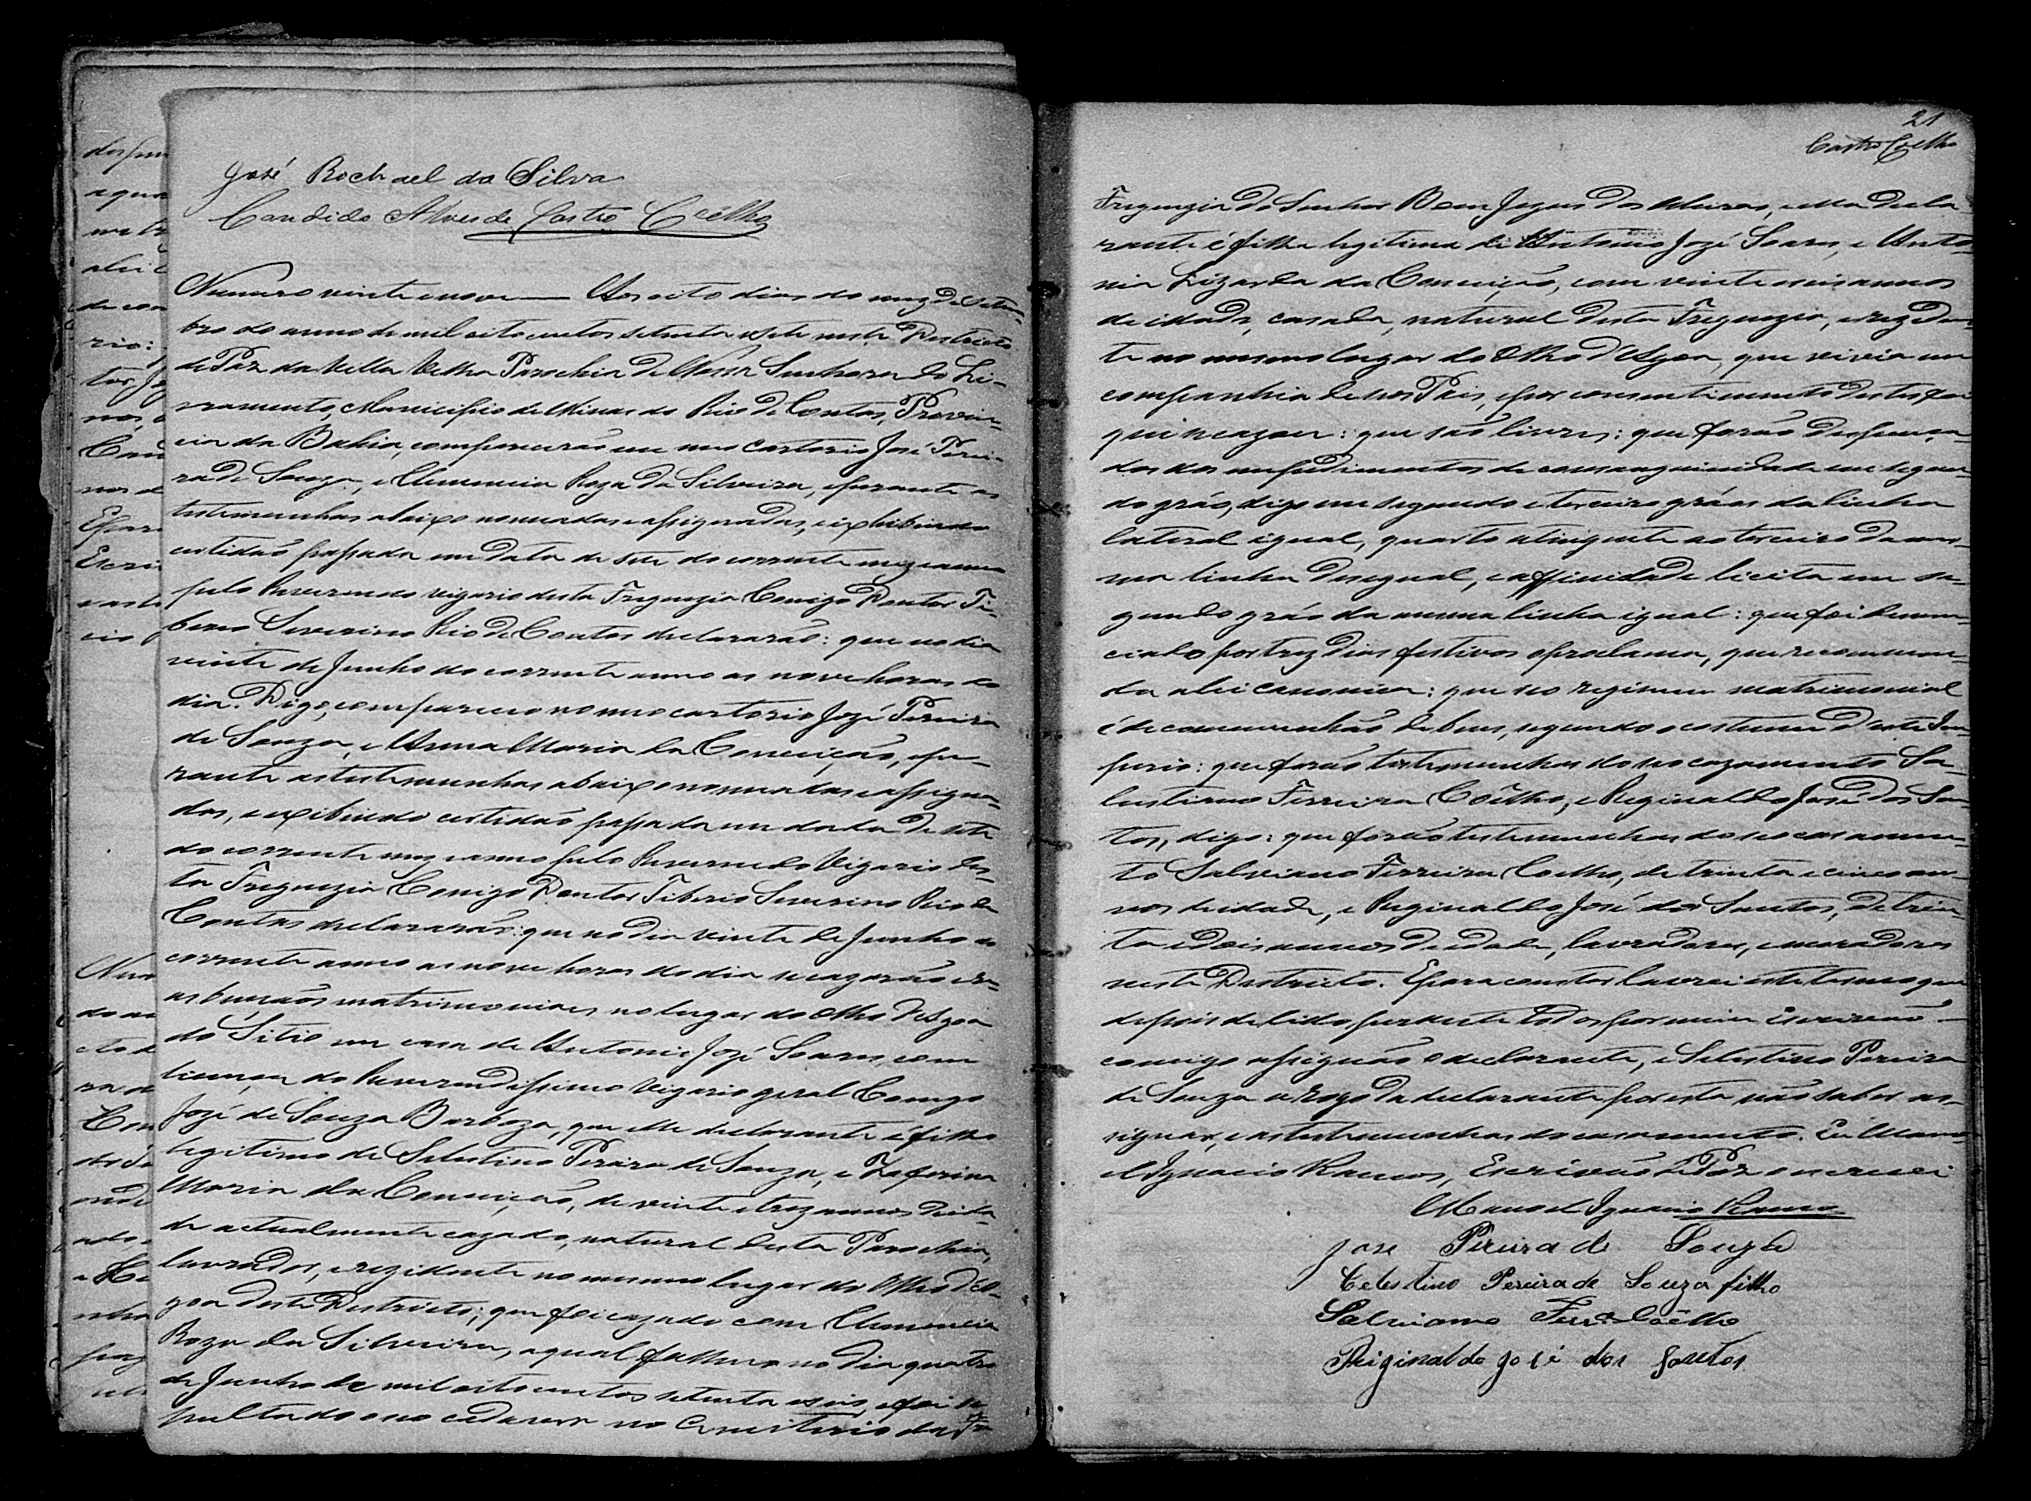 José Rochael da Silva
Candido Alves de Castro Coêlho
Numero vinte e nove — Aos oito dias do mez de Setem-
bro do anno de mil oito centos setenta e sete neste Districto
de Paz da Villa Velha Parochia de Nossa Senhora do Li-
vramento, Municipio de Minas do Rio de Contas, Provin-
cia da Bahia, comparecerão em meo cartorio José Perei-
ra de Souza, e Clemencia Roza da Silveira, e perante as
testemunhas abaixo nomeadas e assignadas, e exhibindo
certidão passada em data de sete do corrente mez e anno
pelo Reverendo vigario desta Freguezia Conigo Doutor Ti-
berio Severino Rio de Contas declararão: que no dia
vinte de Junho do corrente anno as nove horas do
dia. Digo, compareceo no meo cartorio José Pereira
de Souza, e Anna Maria da Conceição, e pe-
rante as testemunhas abaixo nomeadas e assigna-
das, e exibindo certidão passada em data de sete
do corrente mez e anno pelo Reverendo Vigario des-
ta Freguezia Conigo Doutor Tiberio Severino Rio de
Contas declararão: que no dia vinte de Junho do
corrente anno as nove horas do dia se cazarão e
as bençãos matrimoniaes no lugar do Olho d'Agoa
do Sitio em casa de Antonio José Soares, com
licença do Reverendissimo Vigario geral Conigo
José de Souza Barboza, que elle declarante é filho
legitimo de Selestino Pereira de Souza, e Zeferina
Maria da Conceição, de vinte e trez annos de ida-
de actualmente cazado, natural desta Parochia,
lavrador, e rezidente no mesmo lugar do Olho d'A-
goa deste Districto; que foi cazado com Clemencia
Roza da Silveira, a qual falleceo no dia quatro
de Junho de mil oito centos setenta e seis, e foi se-
pultado o seo cadaver no Cemiterio da
21
Castro Coelho
Freguezia do Senhor Bom Jezus dos Meiras, e ella decla-
rante é filha legitima de Antonio José Soares, e Anto-
nia Lizarda da Conceição, com vinte e seis annos
de idade, casada, natural desta Freguezia, e reziden-
te no mesmo lugar do Olho d'Agoa, que vivia em
companhia de seos Pais, e por consentimento destes foi
que se cazou: que são livres: que forão dispensa-
dos dos impedimentos de consanguinidade em segun-
do gráo, digo em segundo e terceiro gráos da linha
lateral igual, quarto atingente ao terceiro da mes-
ma linha desigual, e affinidade licita em se-
gundo gráo da mesma linha igual: que foi denun-
ciado por trez dias festivos o proclama, que recommen-
da a lei canonica: que seo regimen matrimonial
é de communhão de bens, segundo o costume deste Im-
perio: que forão testemunhas do seo cazamento Sa-
lustiano Ferreira Coêlho, e Reginaldo José dos San-
tos, digo: que forão testemunhas do seo casamen-
to Salviano Ferreira Coelho, de trinta e cinco an-
nos de idade, e Reginaldo José dos Santos, de trin-
ta e dois annos de idade, lavradores, e moradores
neste Districto. E para constar lavrei este termo que
depois de lido perante todos por mim Escrivão
comigo assignão o declarante, e Selestino Pereira
de Souza a rogo da declarante por esta não saber as-
signar, e as testemunhas do casamento. Eu Mano-
el Ignacio Ramos, Escrivão de Paz o escrevi
Manoel Ignacio Ramos
José Pereira de Souza
Celestino Pereira de Souza filho
Salviano Ferr.ª Coêlho
Reiginaldo José dos Santos